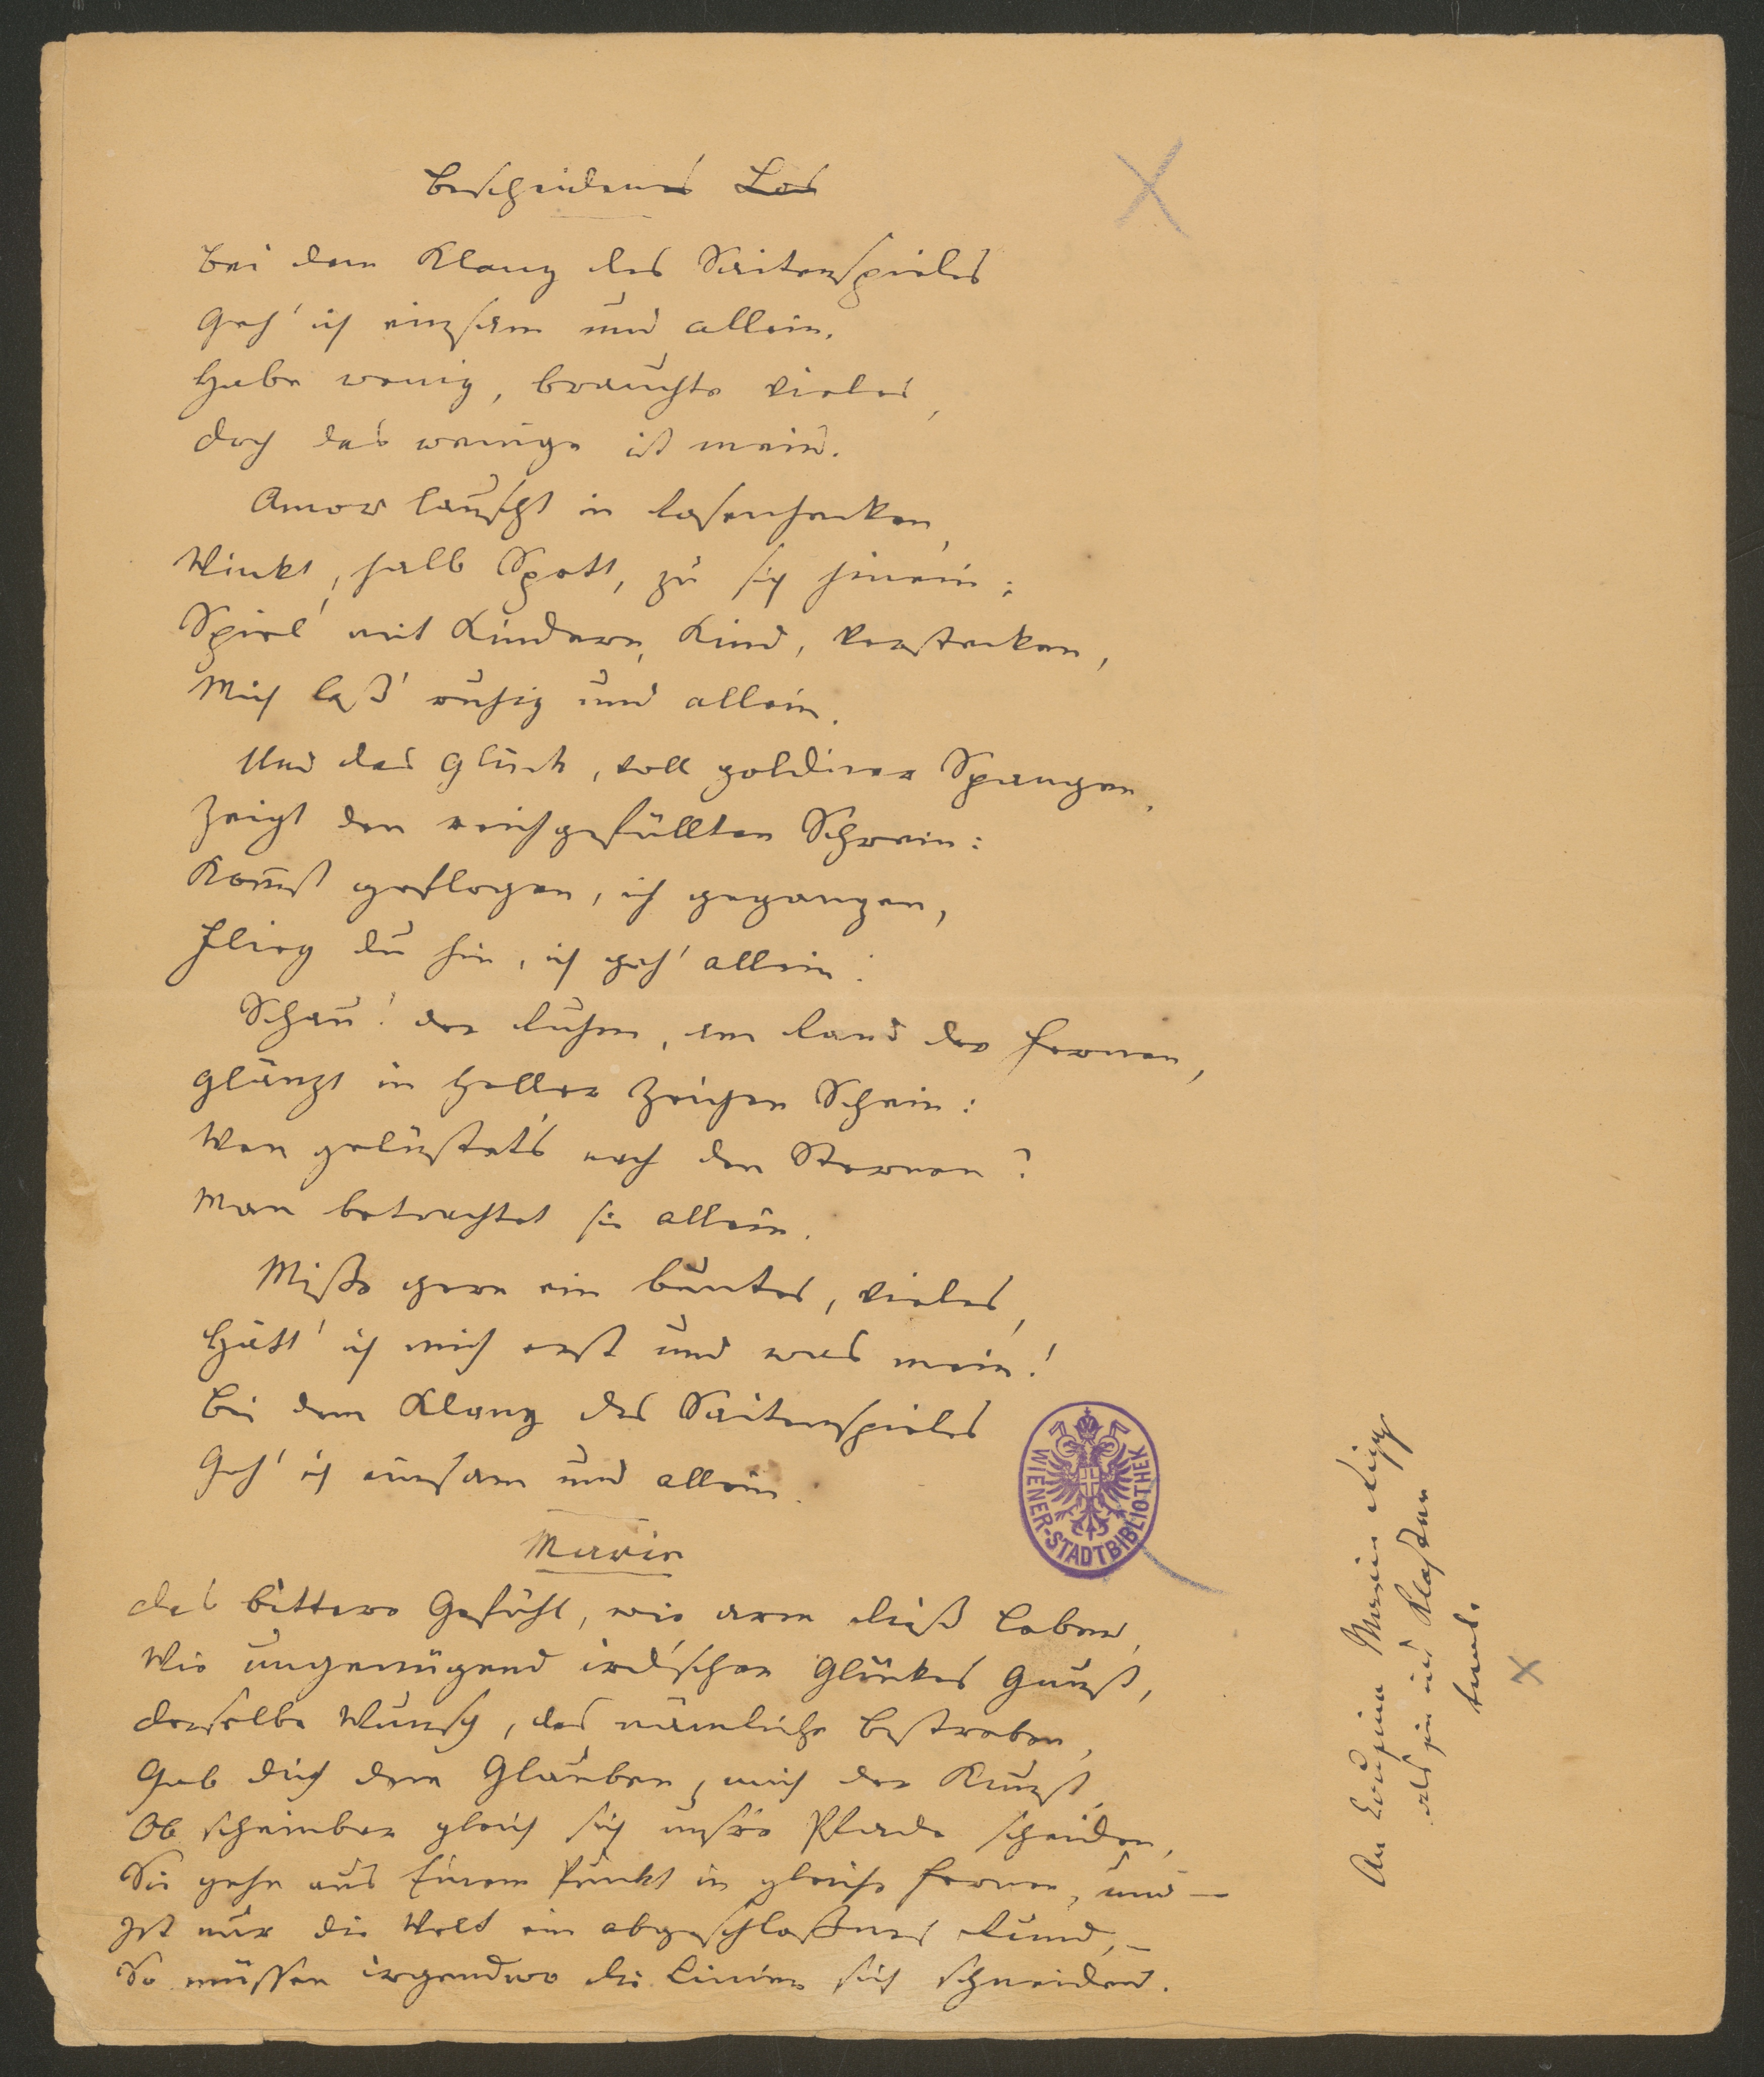 Bescheidenes Los
Bei dem Klang des Saitenspieles
Geh' ich einsam und allein.
Habe wenig, brauchte vieles,
doch das wenige ist mein.
Amor lauscht in Rosenhecken,
Winkt, halb Spott, zu sich hinein;
Spiel' mit Kindern, Kind, verstecken,
Mich laß' ruhig und allein.
Und das Glück, voll goldner Spangen,
Zeigt den reichgefüllten Schrein:
Kom̄st geflogen, ich gegangen,
Flieg du hin, ich geh' allein!
Schau! der Ruhm, am Rand der Fernen,
Glänzt in heller Zeichen Schein:
Wen gelüstet's nach den Sternen?
Man betrachtet sie allein.
Misse gern ein buntes, vieles,
Hätt' ich mich erst und was mein!
Bei dem Klang des Saitenspieles
Geh' ich einsam und allein.
Marie
das bittere Gefühl, wie arm dieß Leben,
Wie ungenügend ird'schen Glückes Gunst,
derselbe Wunsch, das nämliche Bestreben,
Gab dich dem Glauben, mich der Kunst,
Ob scheinbar gleich sich unsre Pfade scheiden,
Sie gehn aus Einem Punkt in gleiche Fernen, und —
Ist nur die Welt ein abgeschloßnes Rund, –
So müssen irgendwo die Linien sich schneiden.
An Cousine Marie Rizy
als sie ins Kloster
trat.
WIENER-STADTBIBLIOTHEK